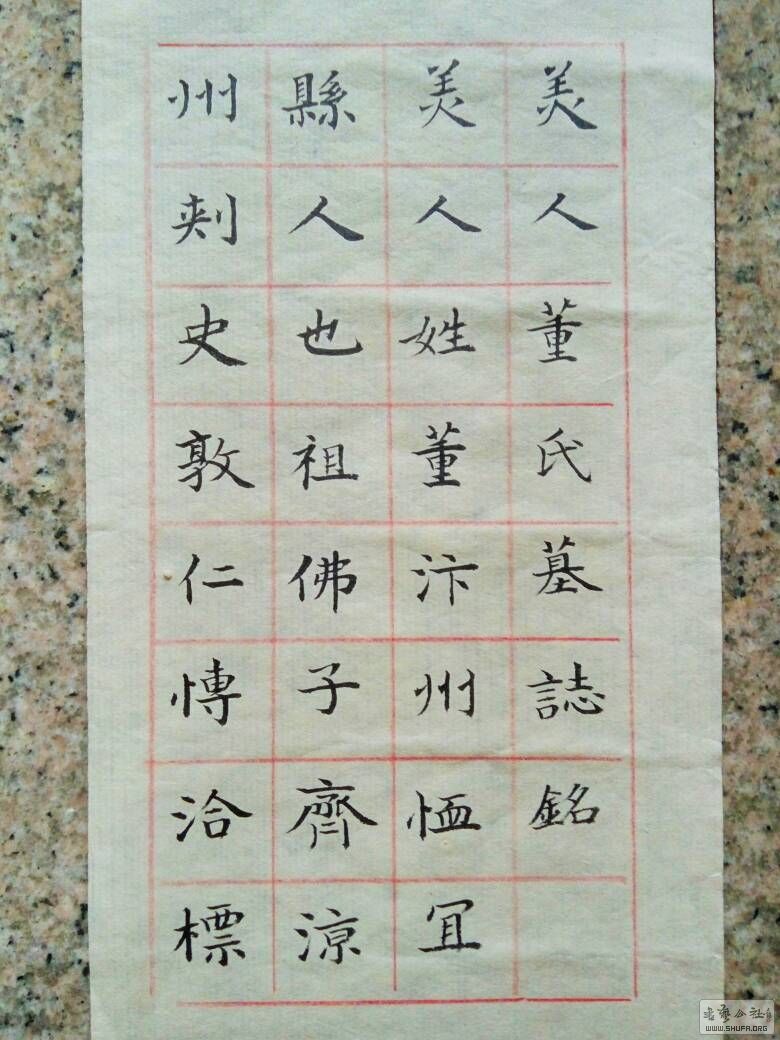 美人董氏墓誌銘
美人姓董汴州恤冝
縣人也祖佛子齊涼
州刾史敦仁慱洽標
书艺公社
WWW.SHUFA.ORG